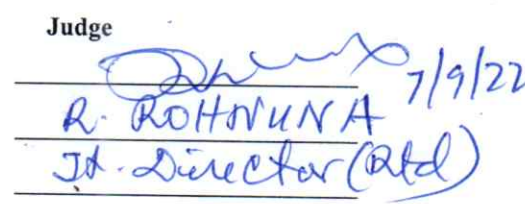 Judge
7/9/22
R. ROHNUNA
Jt. Director (Rtd)